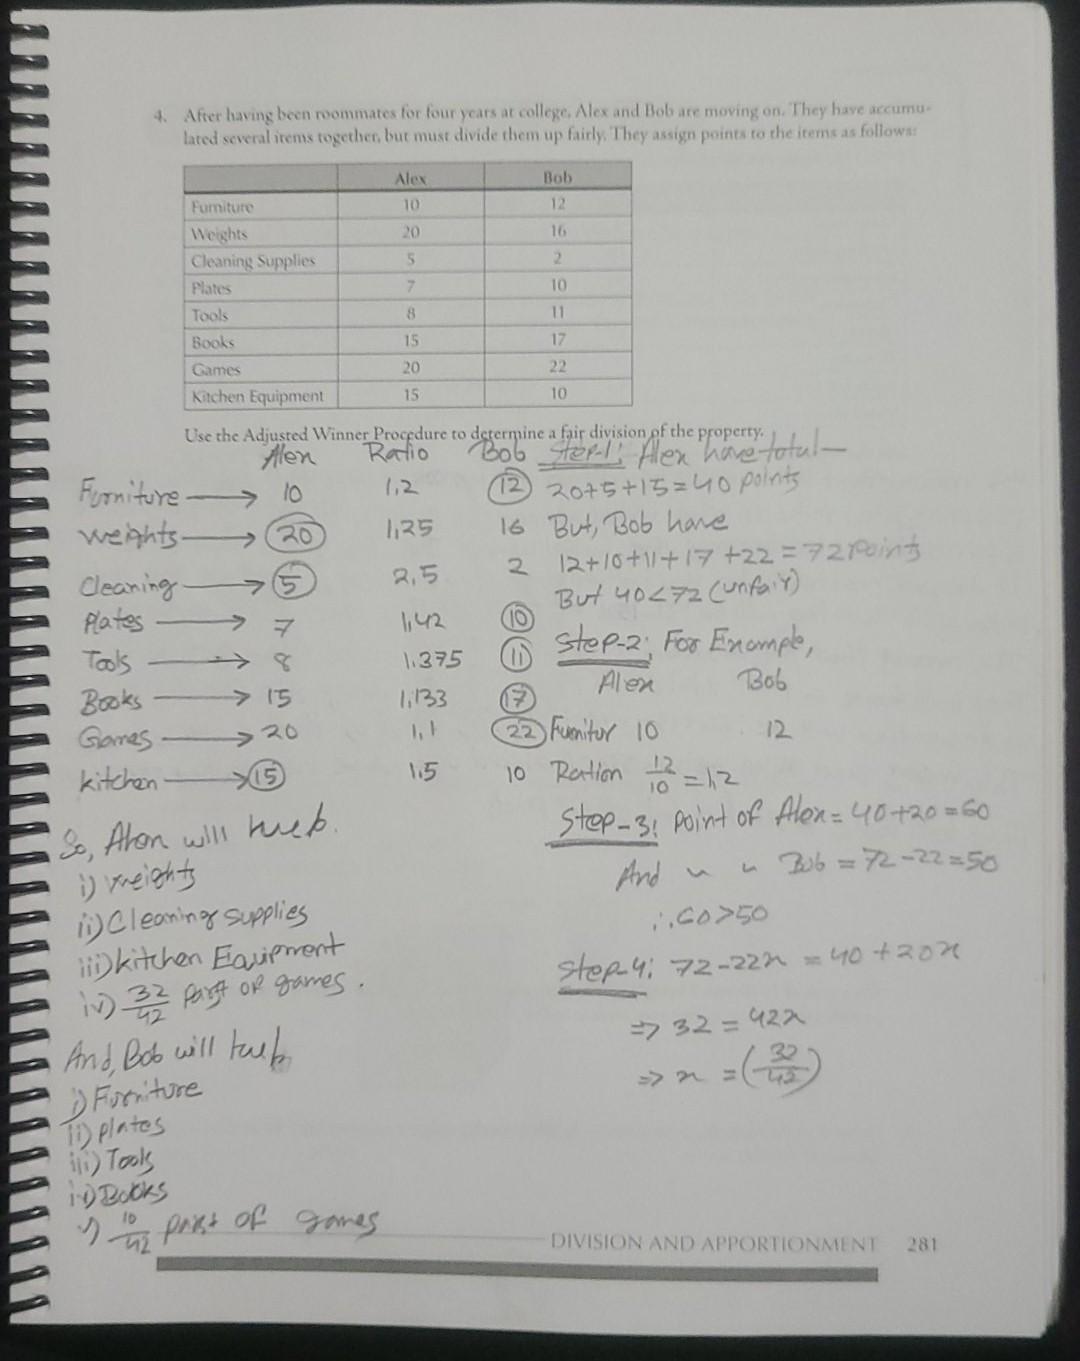 4. After having been roommates for four years at college, Alex and Bob are moving on. They have accumu-
lated several items together, but must divide them up fairly. They assign points to the items as follows:
Alex Bob
Furniture 10 12
Weights 20 16
Cleaning Supplies 5 2
Plates 7 10
Tools 8 11
Books 15 17
Games 20 22
Kitchen Equipment 15 10
Use the Adjusted Winner Procedure to determine a fair division of the property.
Alen Ratio Bob
Furniture → 10 1.2 12
weights → 20 1.25 16
Cleaning → 5 2.5 2
Plates → 7 1.42 10
Tools → 8 1.375 11
Books → 15 1.133 17
Games → 20 1.1 22
kitchen → 15 1.5 10
So, Alen will
i) weights
ii) Cleaning supplies
iii) kitchen Equipment
iv) 32/42 part of games.
And, Bob will
i) Furniture
ii) plates
iii) Tools
iv) Books
v) 10/42 part of games
Step-1: Alex have total —
20+5+15=40 points
But, Bob have
12+10+11+17+22=72 points
But 40<72 (unfair)
Step-2: For Example,
Alen Bob
Furnitur 10 12
Ration 12/10 = 1.2
Step-3: point of Alen = 40+20=60
And " " Bob = 72-22=50
∴ 60>50
Step-4: 72-22x = 40+20x
⇒ 32 = 42x
⇒ x = (32/42)
DIVISION AND APPORTIONMENT 281